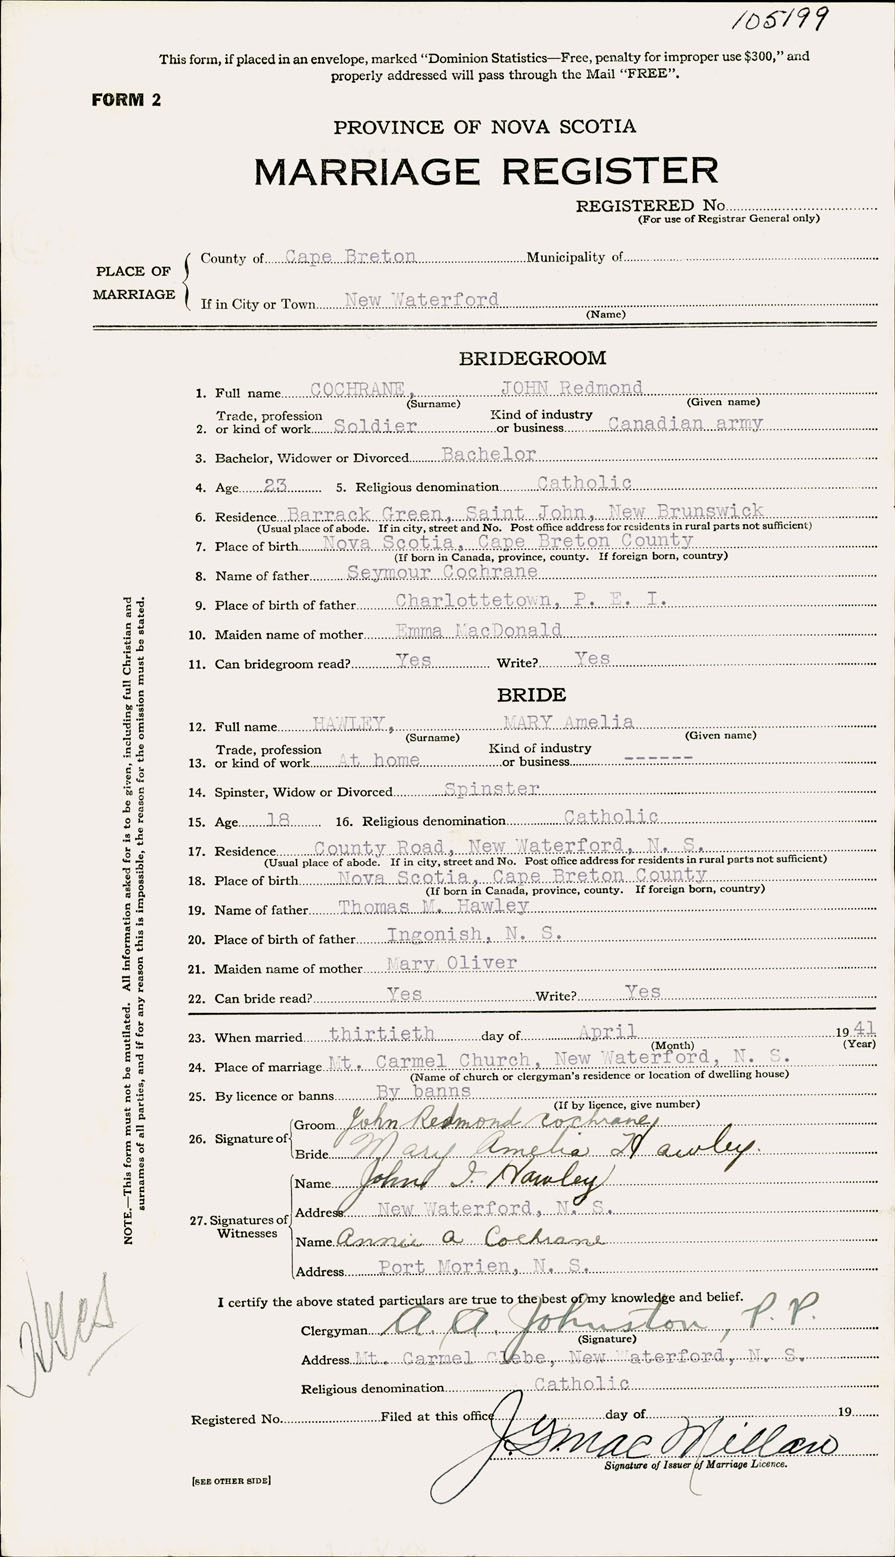 105199
This form, if placed in an envelope, marked “Dominion Statistics—Free, penalty for improper use $300,” and
properly addressed will pass through the Mail “FREE”.
FORM 2
PROVINCE OF NOVA SCOTIA
MARRIAGE REGISTER
REGISTERED No.
(For use of Registrar General only)
PLACE OF MARRIAGE
County of Cape Breton Municipality of
If in City or Town New Waterford
(Name)
BRIDEGROOM
1. Full name COCHRANE, JOHN Redmond
(Surname) (Given name)
Trade, profession Kind of industry
2. or kind of work Soldier or business Canadian army
3. Bachelor, Widower or Divorced Bachelor
4. Age 23 5. Religious denomination Catholic
6. Residence Barrack Green, Saint John, New Brunswick
(Usual place of abode. If in city, street and No. Post office address for residents in rural parts not sufficient)
7. Place of birth Nova Scotia, Cape Breton County
(If born in Canada, province, county. If foreign born, country)
8. Name of father Seymour Cochrane
9. Place of birth of father Charlottetown, P. E. I.
10. Maiden name of mother Emma MacDonald
11. Can bridegroom read? Yes Write? Yes
BRIDE
12. Full name HAWLEY, MARY Amelia
(Surname) (Given name)
Trade, profession Kind of industry
13. or kind of work At home or business ------
14. Spinster, Widow or Divorced Spinster
15. Age 18 16. Religious denomination Catholic
17. Residence County Road, New Waterford, N. S.
(Usual place of abode. If in city, street and No. Post office address for residents in rural parts not sufficient)
18. Place of birth Nova Scotia, Cape Breton County
(If born in Canada, province, county. If foreign born, country)
19. Name of father Thomas M. Hawley
20. Place of birth of father Ingonish, N. S.
21. Maiden name of mother Mary Oliver
22. Can bride read? Yes Write? Yes
23. When married thirtieth day of April 1941
(Month) (Year)
24. Place of marriage Mt. Carmel Church, New Waterford, N. S.
(Name of church or clergyman's residence or location of dwelling house)
25. By licence or banns By banns
(If by licence, give number)
26. Signature of
Groom John Redmond Cochrane
Bride Mary Amelia Hawley.
27. Signatures of Witnesses
Name John J. Hawley
Address New Waterford, N. S.
Name Annie A Cochrane
Address Port Morien, N. S.
I certify the above stated particulars are true to the best of my knowledge and belief.
Clergyman A. A. Johnston, P. P.
(Signature)
Address Mt. Carmel Glebe, New Waterford, N. S.
Religious denomination Catholic
Registered No. Filed at this office day of 19
J. G. MacMillan
Signature of Issuer of Marriage Licence.
[SEE OTHER SIDE]
NOTE.—This form must not be mutilated. All information asked for is to be given, including full Christian and
surnames of all parties, and if for any reason this is impossible, the reason for the omission must be stated.